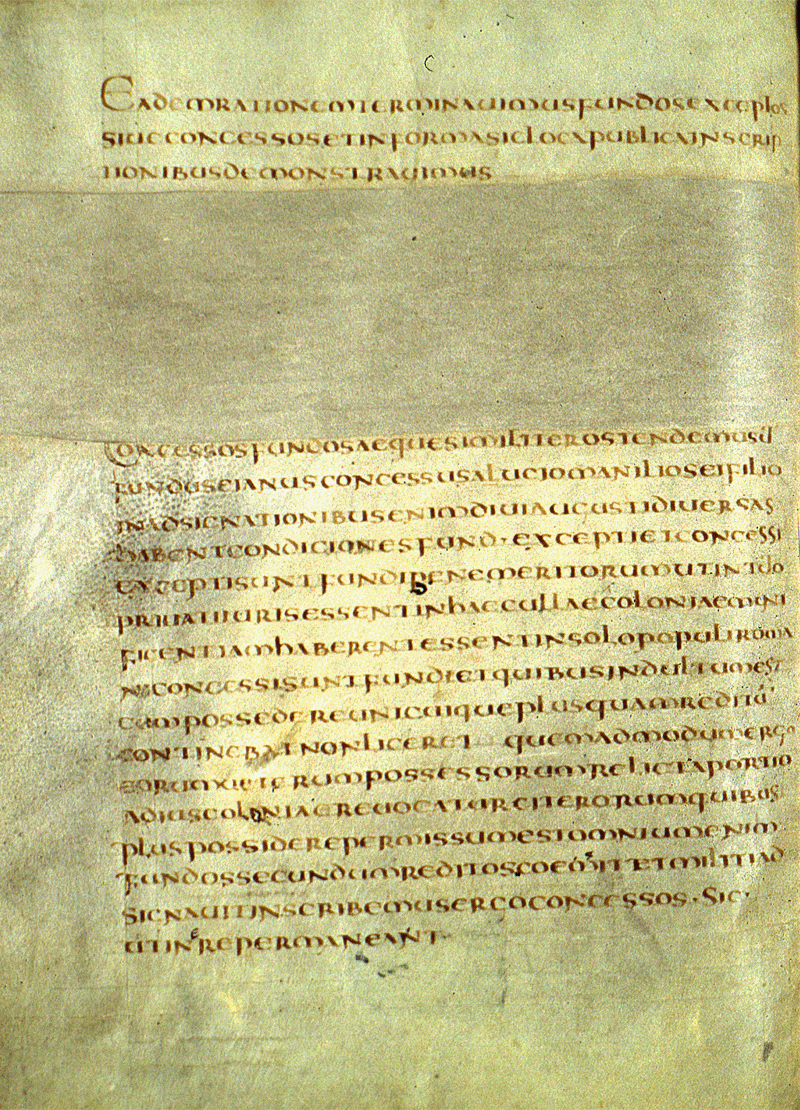 EADEMRATIONEMTERMINAUIMUSFUNDOSEXCEPTOS
SIUECONCESSOSETINFORMASICLOCAPUBLICAINSCRIP
TIONIBUSDEMONSTRAUIMUS
CONCESSOSFUNDOSAEQUESIMILITEROSTENDEMUSUT
FUNDUSEIANUSCONCESSUSALUCIOMANILIOSEIFILIO
INADSIGNATIONIBUSENIMDIUIAUGUSTIDIUERSAS
HABENTCONDICIONESFUND·EXCEPTIETCONCESSI
EXCEPTISUNTFUNDIBENEMERITORUMUTIN
PRIUATIIURISESSENTINHAECCULLAECOLONIAEMUNI
FICENTIAMHABERENTESSENTINSOLOPOPULIROMA
NICONCESSISUNTFUNDIETQUIBUSINDULTUMEST
EAMPOSSEDEREUNICUIQUEPLUSQUAMREDITU
CONTINEBATNONLICERET QUEMADMODUMERGO
EORUMUETERUMPOSSESSORUMRELICTAPORTIO
ADIUSCOLONIAEREUOCATURCITERORUMQUIBUS
PLUSPOSSIDEREPERMISSUMESTOMNIUMENIM
FUNDOSSECUNDUMREDITOSCOEMITETMILITIAD
SIGNAUITINSCRIBEMUSERGOCONCESSOS·SIC·
UTINREPERMANEANT·